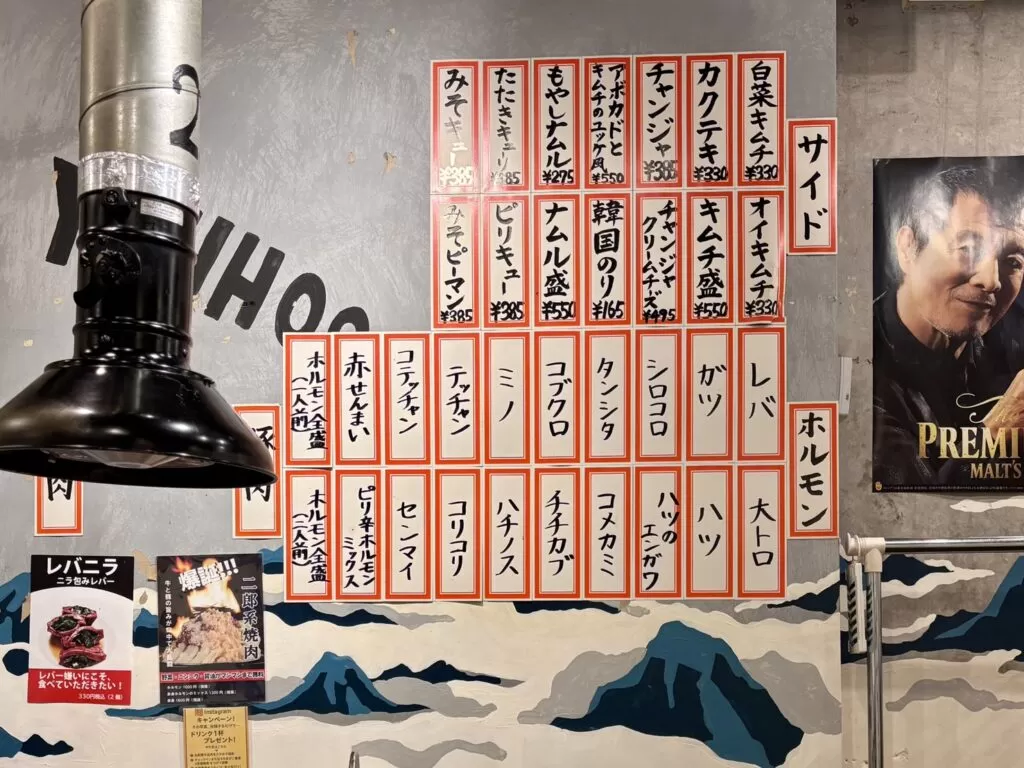 サイド
白菜キムチ
¥330
カクテキ
¥330
チャンジャ
¥385
アボカドと
キムチのユッケ風
¥550
もやしナムル
¥275
たたきキューリ
¥385
みそキュー
¥385
オイキムチ
¥330
キムチ盛
¥550
チャンジャ
クリームチーズ
¥495
韓国のり
¥165
ナムル盛
¥550
ピリキュー
¥385
みそピーマン
¥385
ホルモン
レバ
ガツ
シロコロ
タンシタ
コブクロ
ミノ
テッチャン
コテッチャン
赤せんまい
ホルモン全盛
(一人前)
大トロ
ハツ
ハツの
エンガワ
コメカミ
チチカブ
ハチノス
コリコリ
センマイ
ピリ辛ホルモン
ミックス
ホルモン全盛
(二人前)
豚
肉
肉
2
PREMI
MALT'S
レバニラ
ニラ包みレバー
レバー嫌いにこそ、
食べていただきたい！
330円税込（2個）
爆誕!!!
二郎系焼肉
Instagram
キャンペーン！
ドリンク1杯
プレゼント！